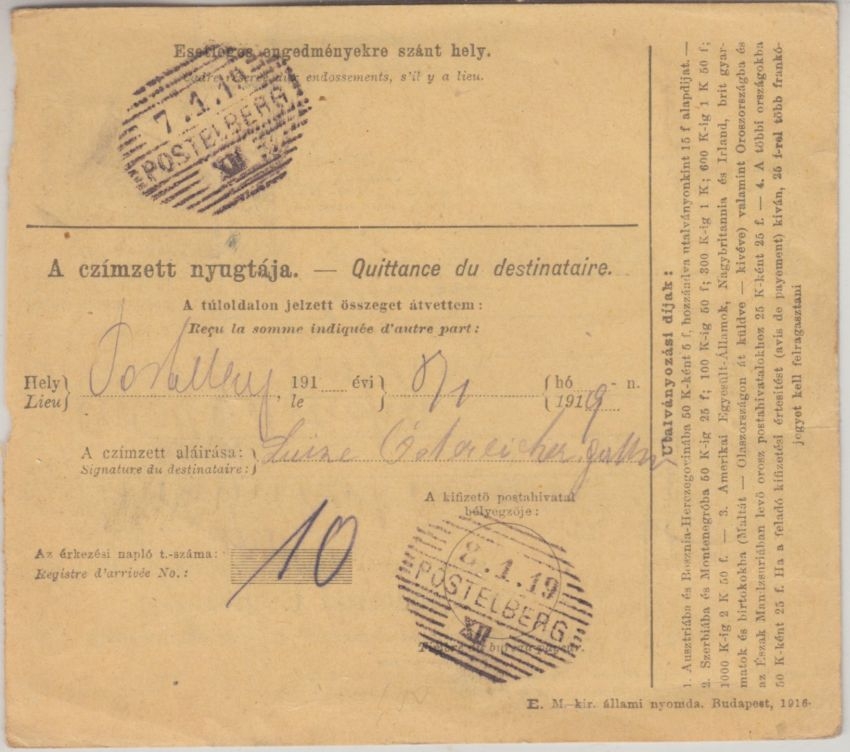 Esetleges engedményekre szánt hely.
Cadre réservé aux endossements, s'il y a lieu.
7.1.19
POSTELBERG
XII
A czímzett nyugtája. — Quittance du destinataire.
A túloldalon jelzett összeget átvettem:
Reçu la somme indiquée d'autre part:
Hely } Postelberg, 191 évi } 8/1 { hó n.
Lieu le 1919
A czímzett aláirása: } Luise Österreicher
Signature du destinataire:
A kifizető postahivatal
bélyegzője:
Az érkezési napló t.-száma: 10
Registre d'arrivée No.:
8.1.19
POSTELBERG
XII
Timbre du bureau payeur.
Utalványozási díjak:
1. Ausztriába és Bosznia-Herczegovinába 50 K-ként 5 f, hozzáadva utalványonkint 15 f alapdíjat. —
2. Szerbiába és Montenegróba 50 K-ig 25 f; 100 K-ig 50 f; 300 K-ig 1 K; 600 K-ig 1 K 50 f;
1000 K-ig 2 K 50 f. — 3. Amerikai Egyesült-Államok, Nagybritannia és Irland, brit gyar-
matok és birtokokba (Maltát — Olaszországon át küldve — kivéve) valamint Oroszországba és
az Észak Mandzsuriában levő orosz postahivatalokhoz 25 K-ként 25 f. — 4. A többi országokba
50 K-ként 25 f. Ha a feladó kifizetési értesítést (avis de payement) kiván, 25 f-rel több frankó-
jegyet kell felragasztani
E. M. kir. állami nyomda. Budapest, 1916.